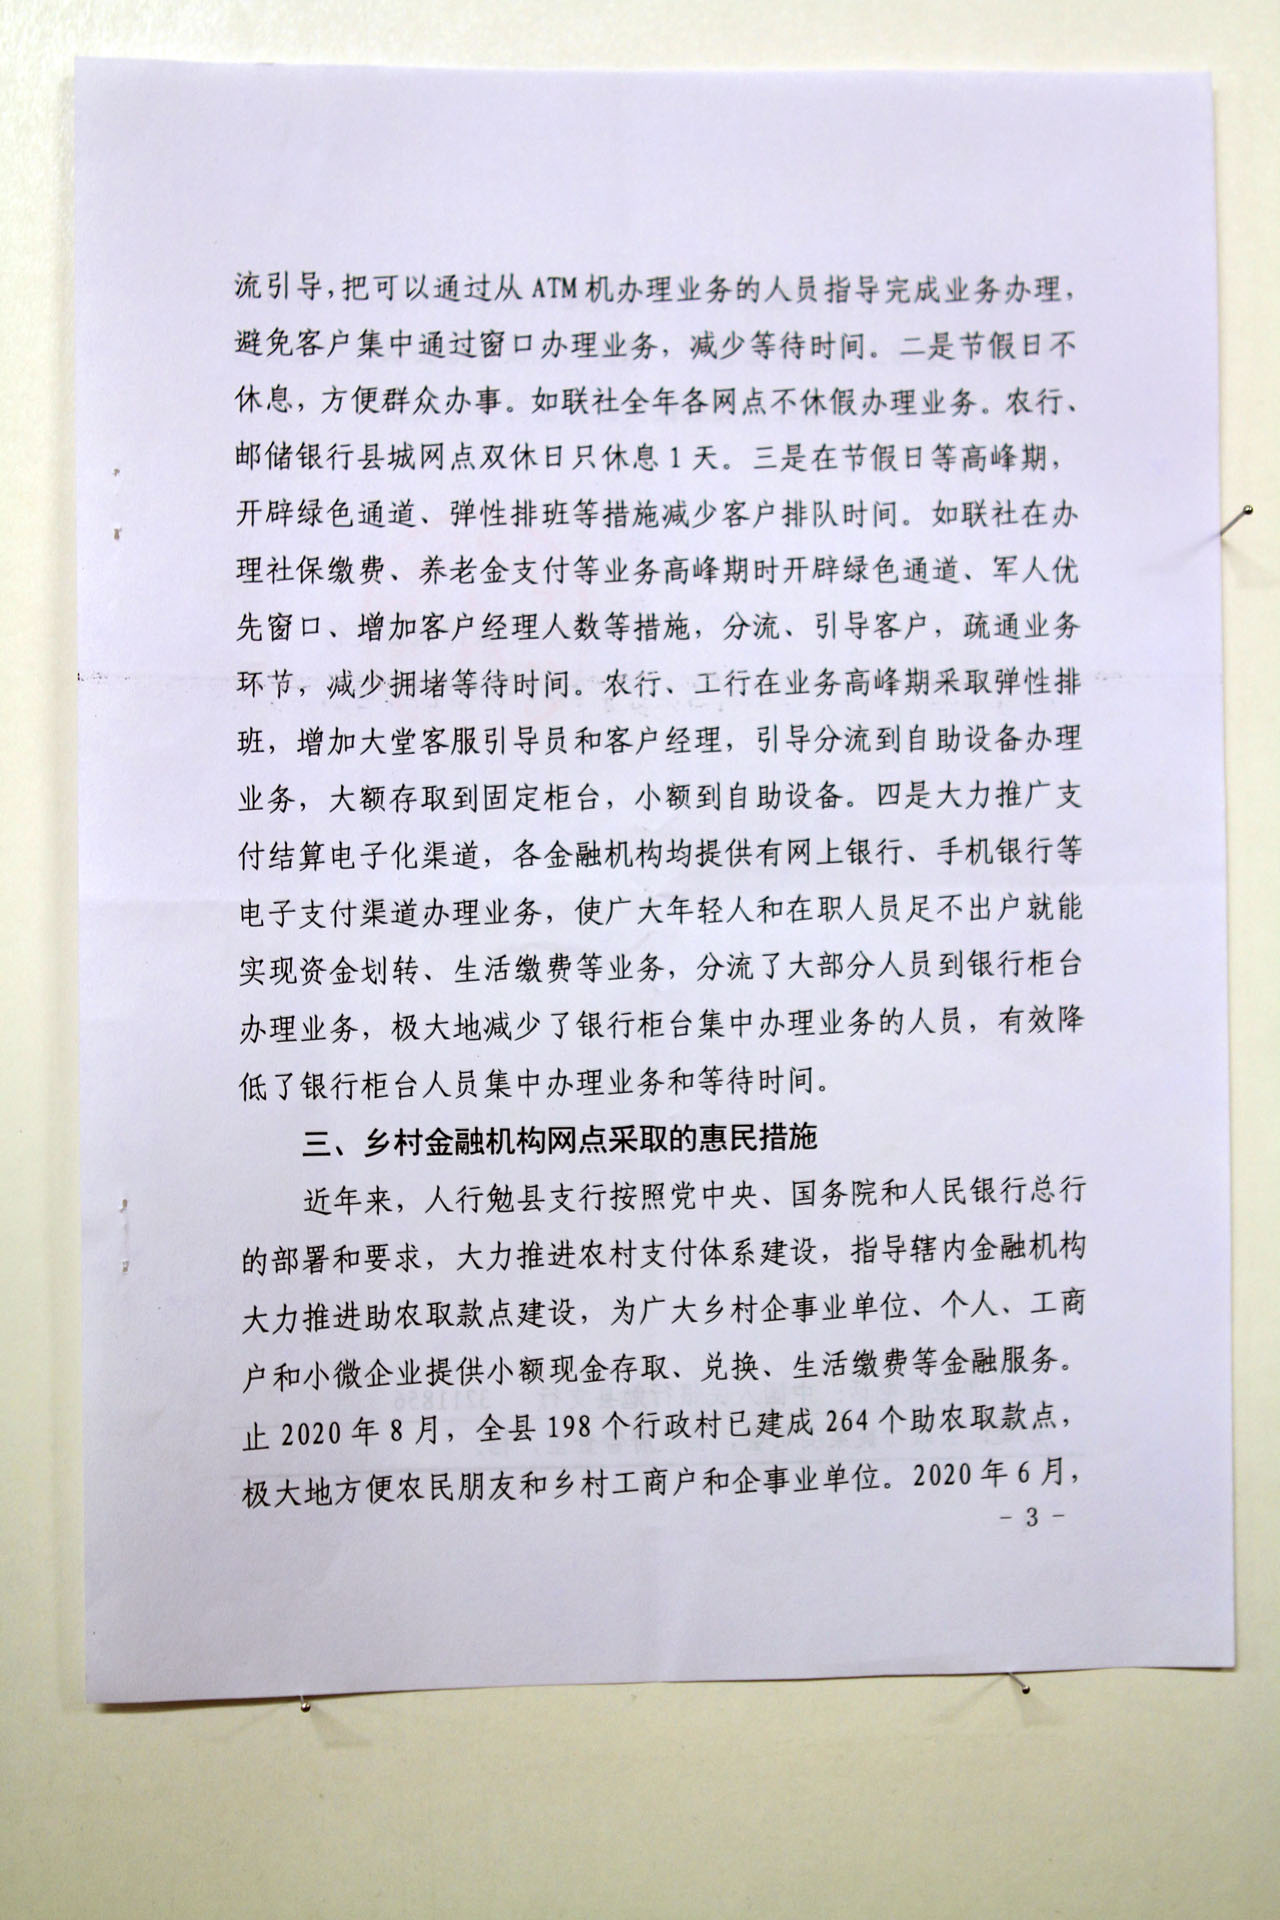 流引导,把可以通过从 ATM 机办理业务的人员指导完成业务办理，
避免客户集中通过窗口办理业务，减少等待时间。二是节假日不
休息，方便群众办事。如联社全年各网点不休假办理业务。农行、
邮储银行县城网点双休日只休息 1 天。三是在节假日等高峰期，
开辟绿色通道、弹性排班等措施减少客户排队时间。如联社在办
理社保缴费、养老金支付等业务高峰期时开辟绿色通道、军人优
先窗口、增加客户经理人数等措施，分流、引导客户，疏通业务
环节，减少拥堵等待时间。农行、工行在业务高峰期采取弹性排
班，增加大堂客服引导员和客户经理，引导分流到自助设备办理
业务，大额存取到固定柜台，小额到自助设备。四是大力推广支
付结算电子化渠道，各金融机构均提供有网上银行、手机银行等
电子支付渠道办理业务，使广大年轻人和在职人员足不出户就能
实现资金划转、生活缴费等业务，分流了大部分人员到银行柜台
办理业务，极大地减少了银行柜台集中办理业务的人员，有效降
低了银行柜台人员集中办理业务和等待时间。
三、乡村金融机构网点采取的惠民措施
近年来，人行勉县支行按照党中央、国务院和人民银行总行
的部署和要求，大力推进农村支付体系建设，指导辖内金融机构
大力推进助农取款点建设，为广大乡村企事业单位、个人、工商
户和小微企业提供小额现金存取、兑换、生活缴费等金融服务。
止 2020 年 8 月，全县 198 个行政村已建成 264 个助农取款点，
极大地方便农民朋友和乡村工商户和企事业单位。2020 年 6 月，
- 3 -